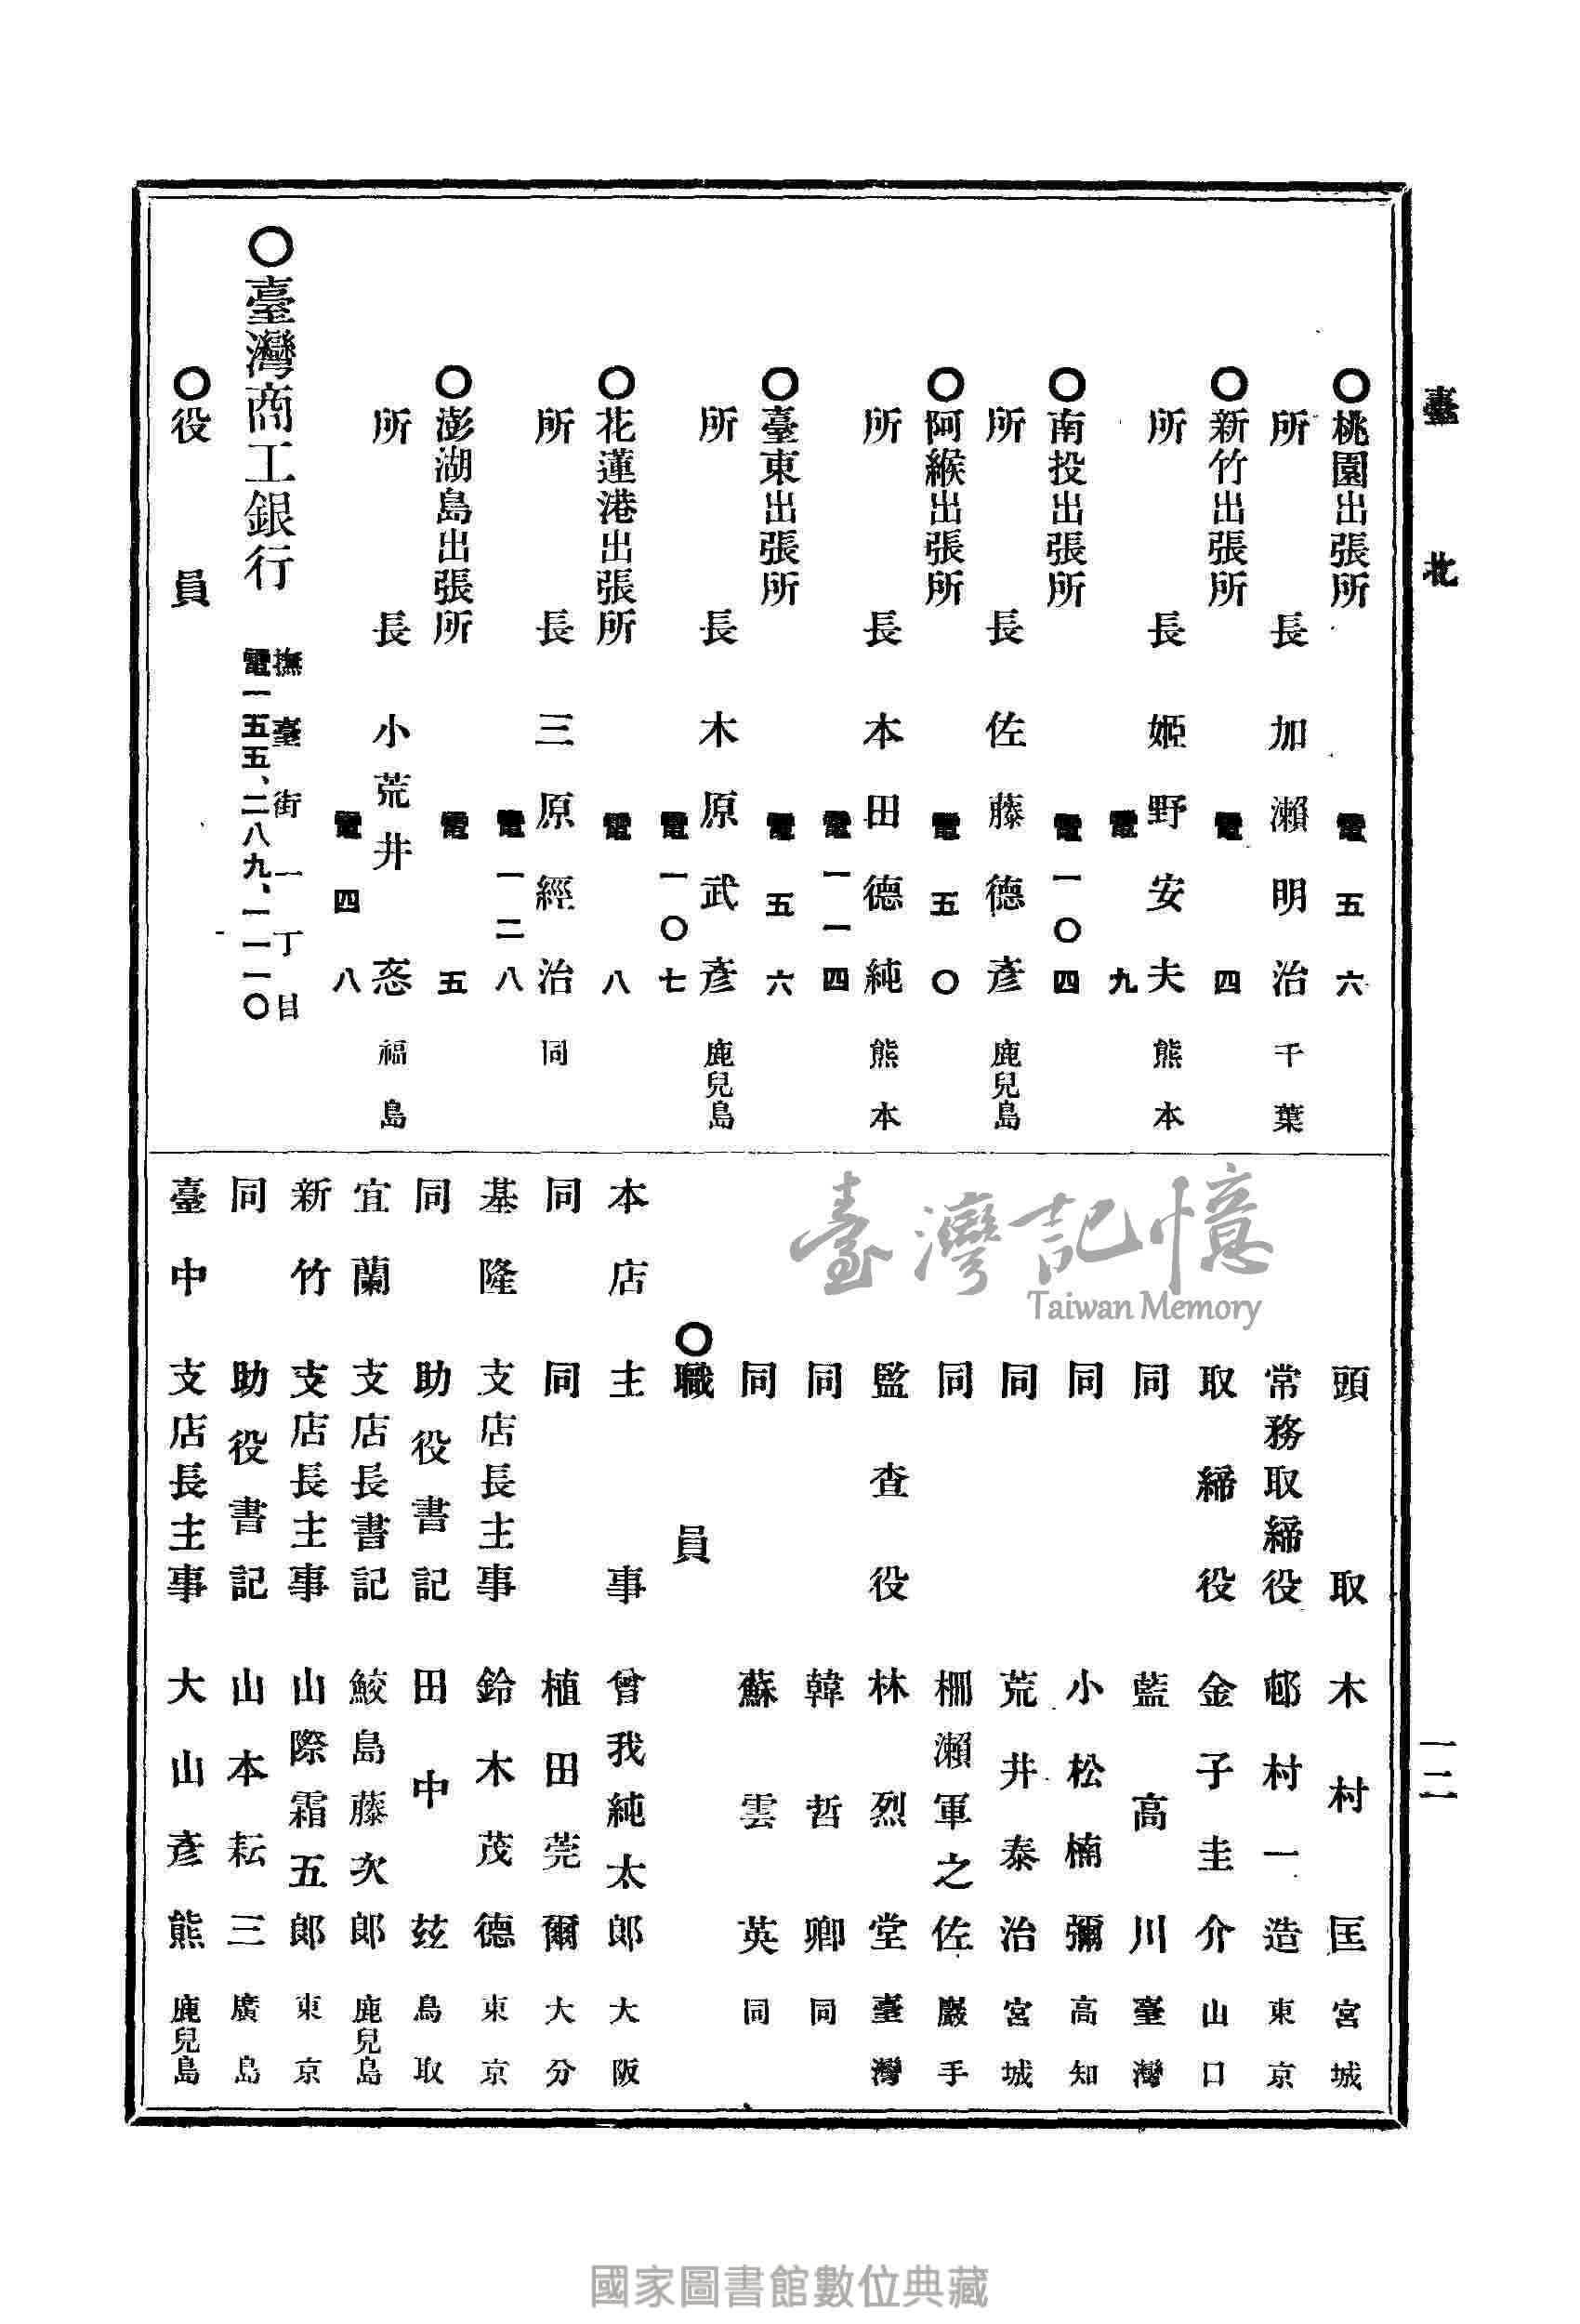 臺北
一二
〇桃園出張所 電五六
所長 加瀨明治 千葉
〇新竹出張所 電四
所長 姬野安夫 熊本
電九
〇南投出張所 電一〇四
所長 佐藤德彥 鹿兒島
〇阿緱出張所 電五〇
所長 本田德純 熊本
電一一四
〇臺東出張所 電五六
所長 木原武彥 鹿兒島
電一〇七
〇花蓮港出張所 電八
所長 三原經治 同
電一二八
〇澎湖島出張所 電五
所長 小荒井 悫 福島
電四八
〇臺灣商工銀行 撫臺街一丁目
電一五五、二八九、一一一〇
〇役員
頭取 木村匡 宮城
常務取締役 邨村一造 東京
取締役 金子圭介 山口
同 藍高川 臺灣
同 小松楠彌 高知
同 荒井泰治 宮城
同 棚瀨軍之佐 巖手
監查役 林烈堂 臺灣
同 韓哲卿 同
同 蘇雲英 同
〇職員
本店 主事 曾我純太郎 大阪
同 同 植田莞爾 大分
基隆 支店長主事 鈴木茂德 東京
同 助役書記 田中玆 鳥取
宜蘭 支店長書記 鮫島藤次郎 鹿兒島
新竹 支店長主事 山際霜五郎 東京
同 助役書記 山本耘三 廣島
臺中 支店長主事 大山彥熊 鹿兒島
臺灣記憶
Taiwan Memory
國家圖書館數位典藏